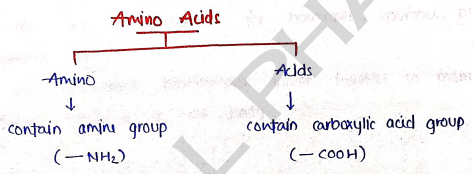 Amino Acids
Amino Acids
↓ ↓
contain amine group contain carboxylic acid group
(—NH₂) (—COOH)